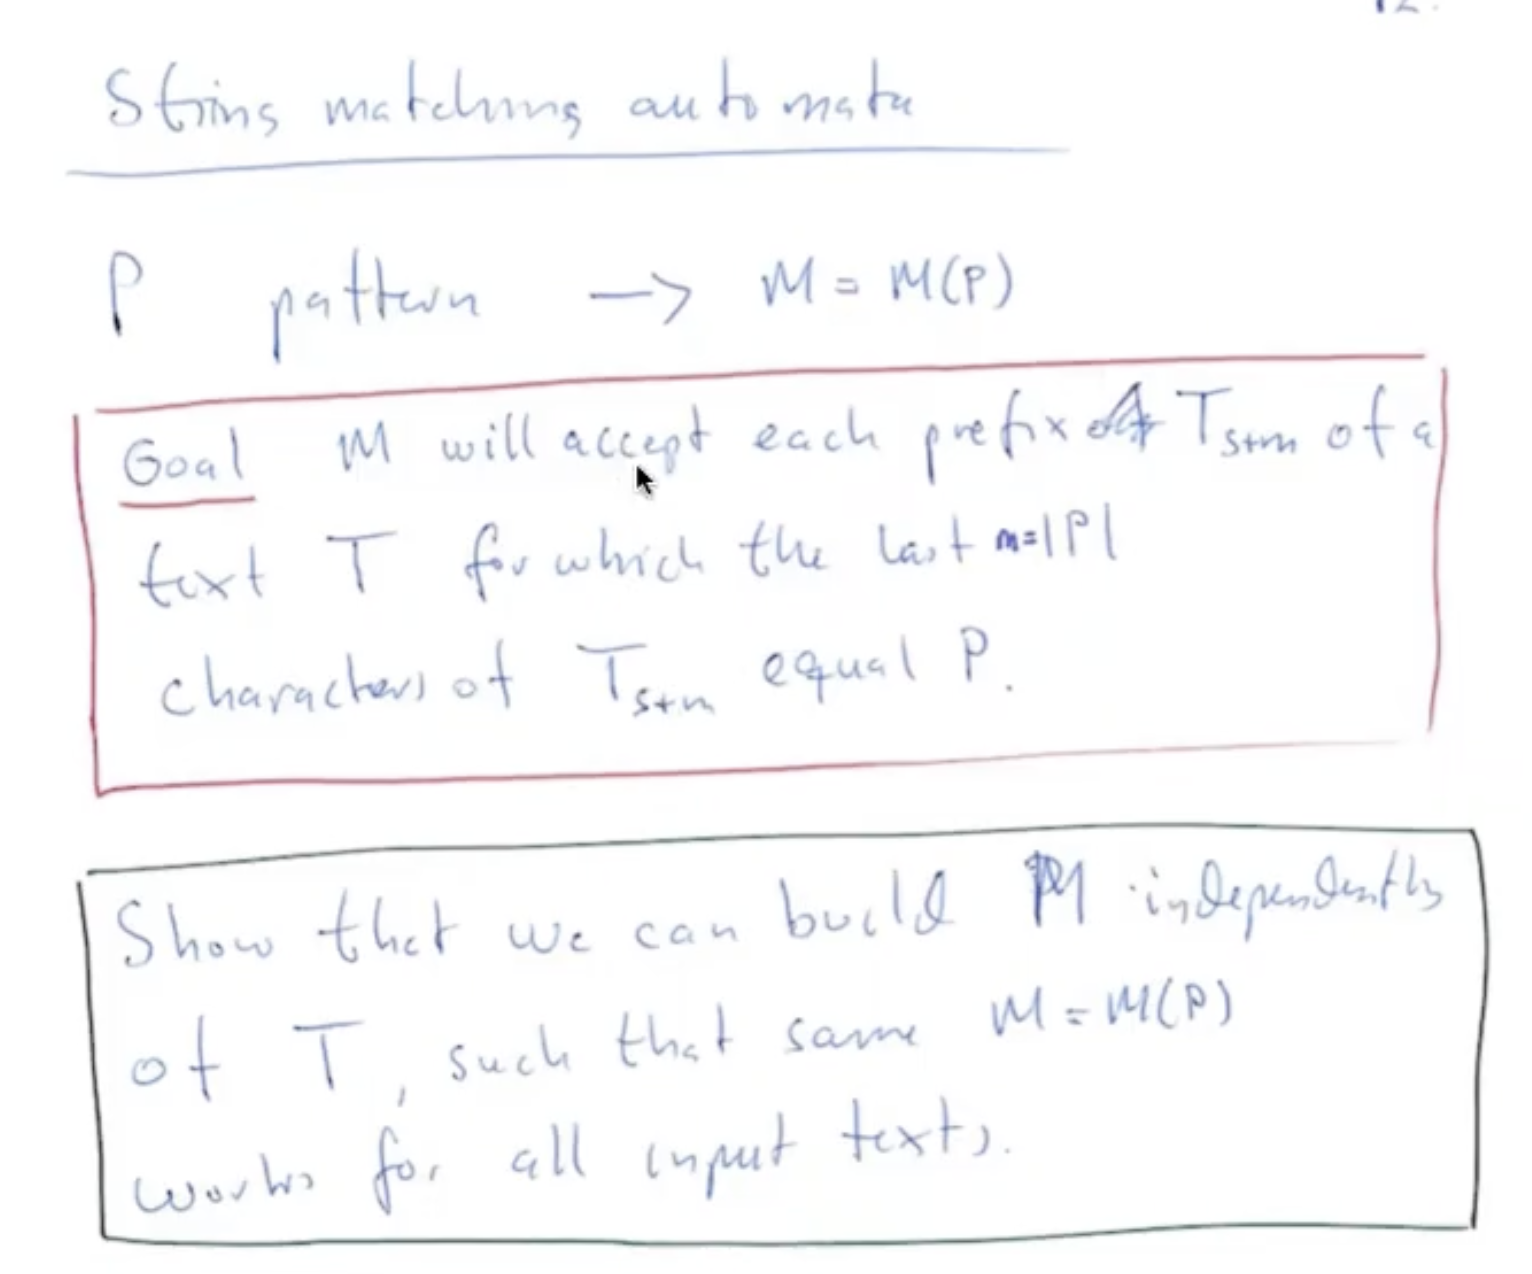 String matching automata
P pattern → M = M(P)
Goal M will accept each prefix T_{s+m} of a
text T for which the last m=|P|
characters of T_{s+m} equal P.
Show that we can build M independently
of T, such that same M = M(P)
works for all input texts.